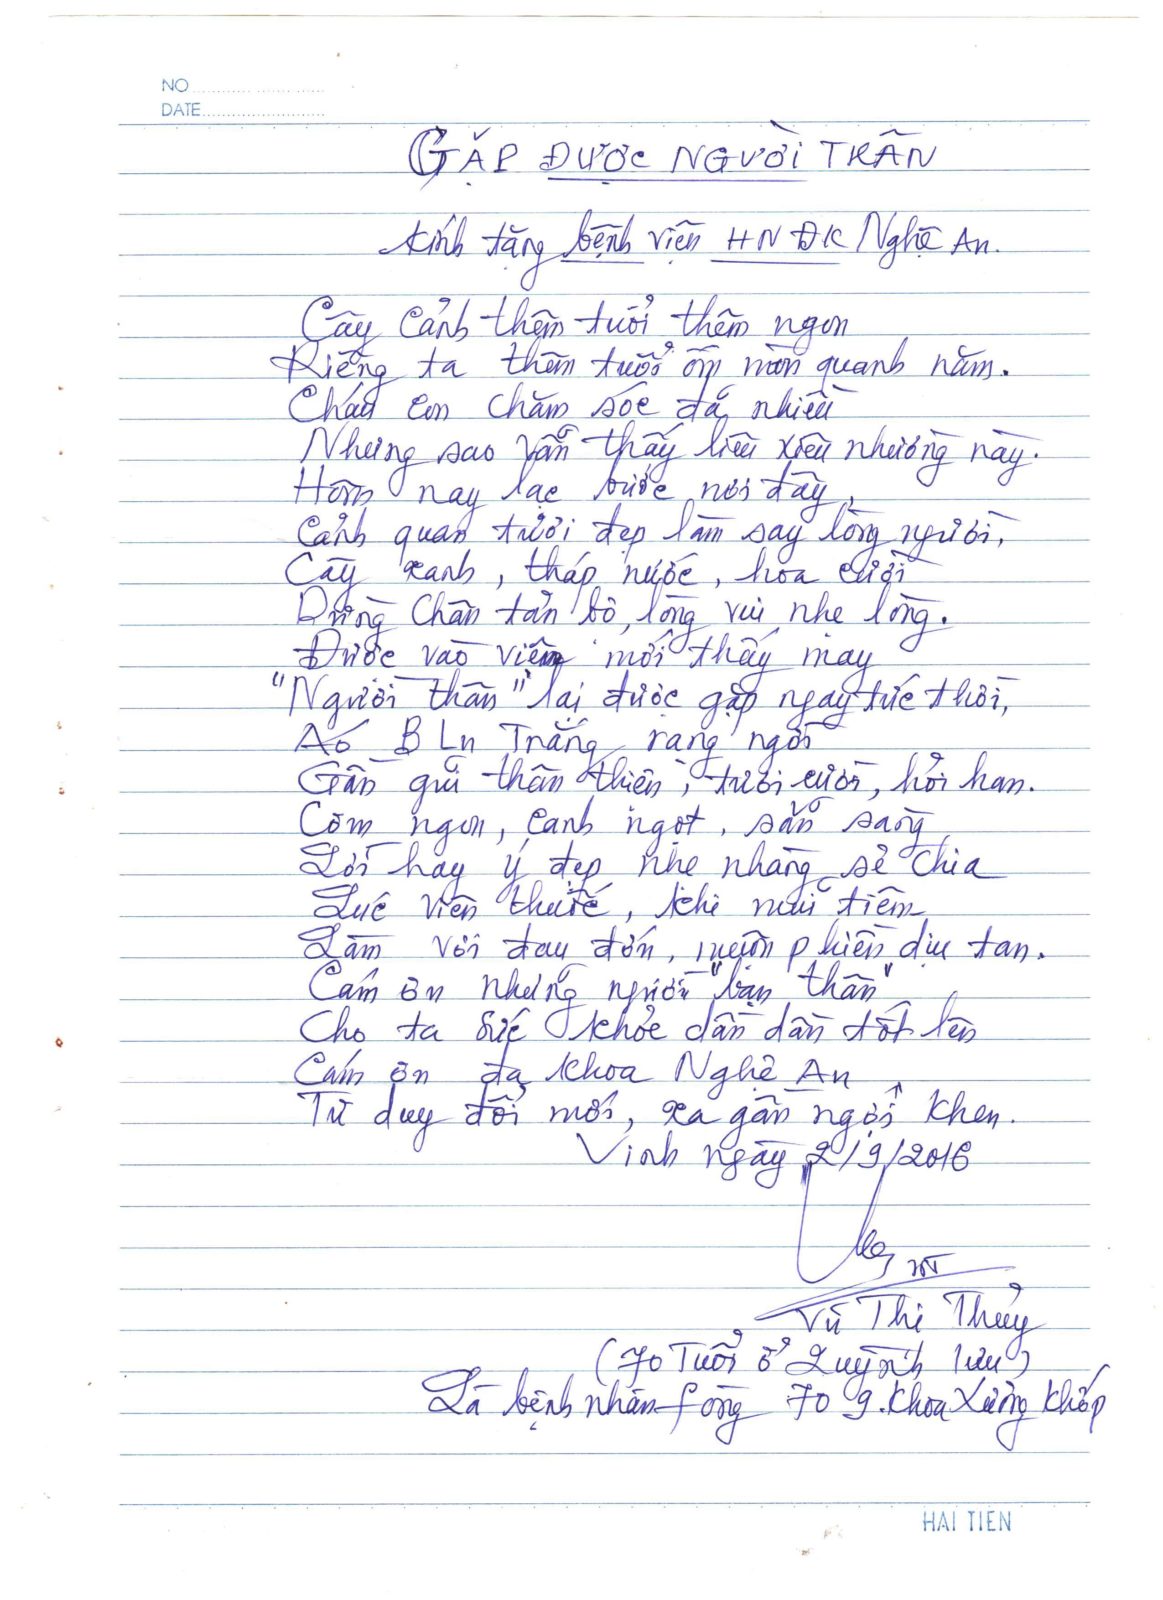 NO
DATE
GẶP ĐƯỢC NGƯỜI THÂN
Kính tặng bệnh viện HNĐK Nghệ An.
Cây cảnh thêm tuổi thêm ngon
Riêng ta thêm tuổi ốm mòn quanh năm.
Cháu con chăm sóc đã nhiều
Nhưng sao vẫn thấy liêu xiêu nhường này.
Hôm nay lạc bước nơi đây,
Cảnh quan tươi đẹp làm say lòng người,
Cây xanh, tháp nước, hoa cười
Dừng chân tản bộ, lòng vui nhẹ lòng.
Được vào viện mới thấy may
"Người thân" lại được gặp ngay tức thời,
Áo BLu Trắng rạng ngời
Gần gũi thân thiện, tươi cười, hỏi han.
Cơm ngon, canh ngọt, sẵn sàng
Lời hay ý đẹp nhẹ nhàng sẻ chia
Lúc viên thuốc, khi mũi tiêm
Làm vơi đau đớn, muộn phiền dịu tan.
Cám ơn những người "bạn thân"
Cho ta sức khỏe dần dần tốt lên
Cám ơn đa khoa Nghệ An
Tư duy đổi mới, xa gần ngợi khen.
Vinh ngày 2/9/2016
Vũ Thị Thủy
(70 Tuổi ở Quỳnh lưu)
Là bệnh nhân fòng 709. Khoa Xương Khớp
HAI TIEN